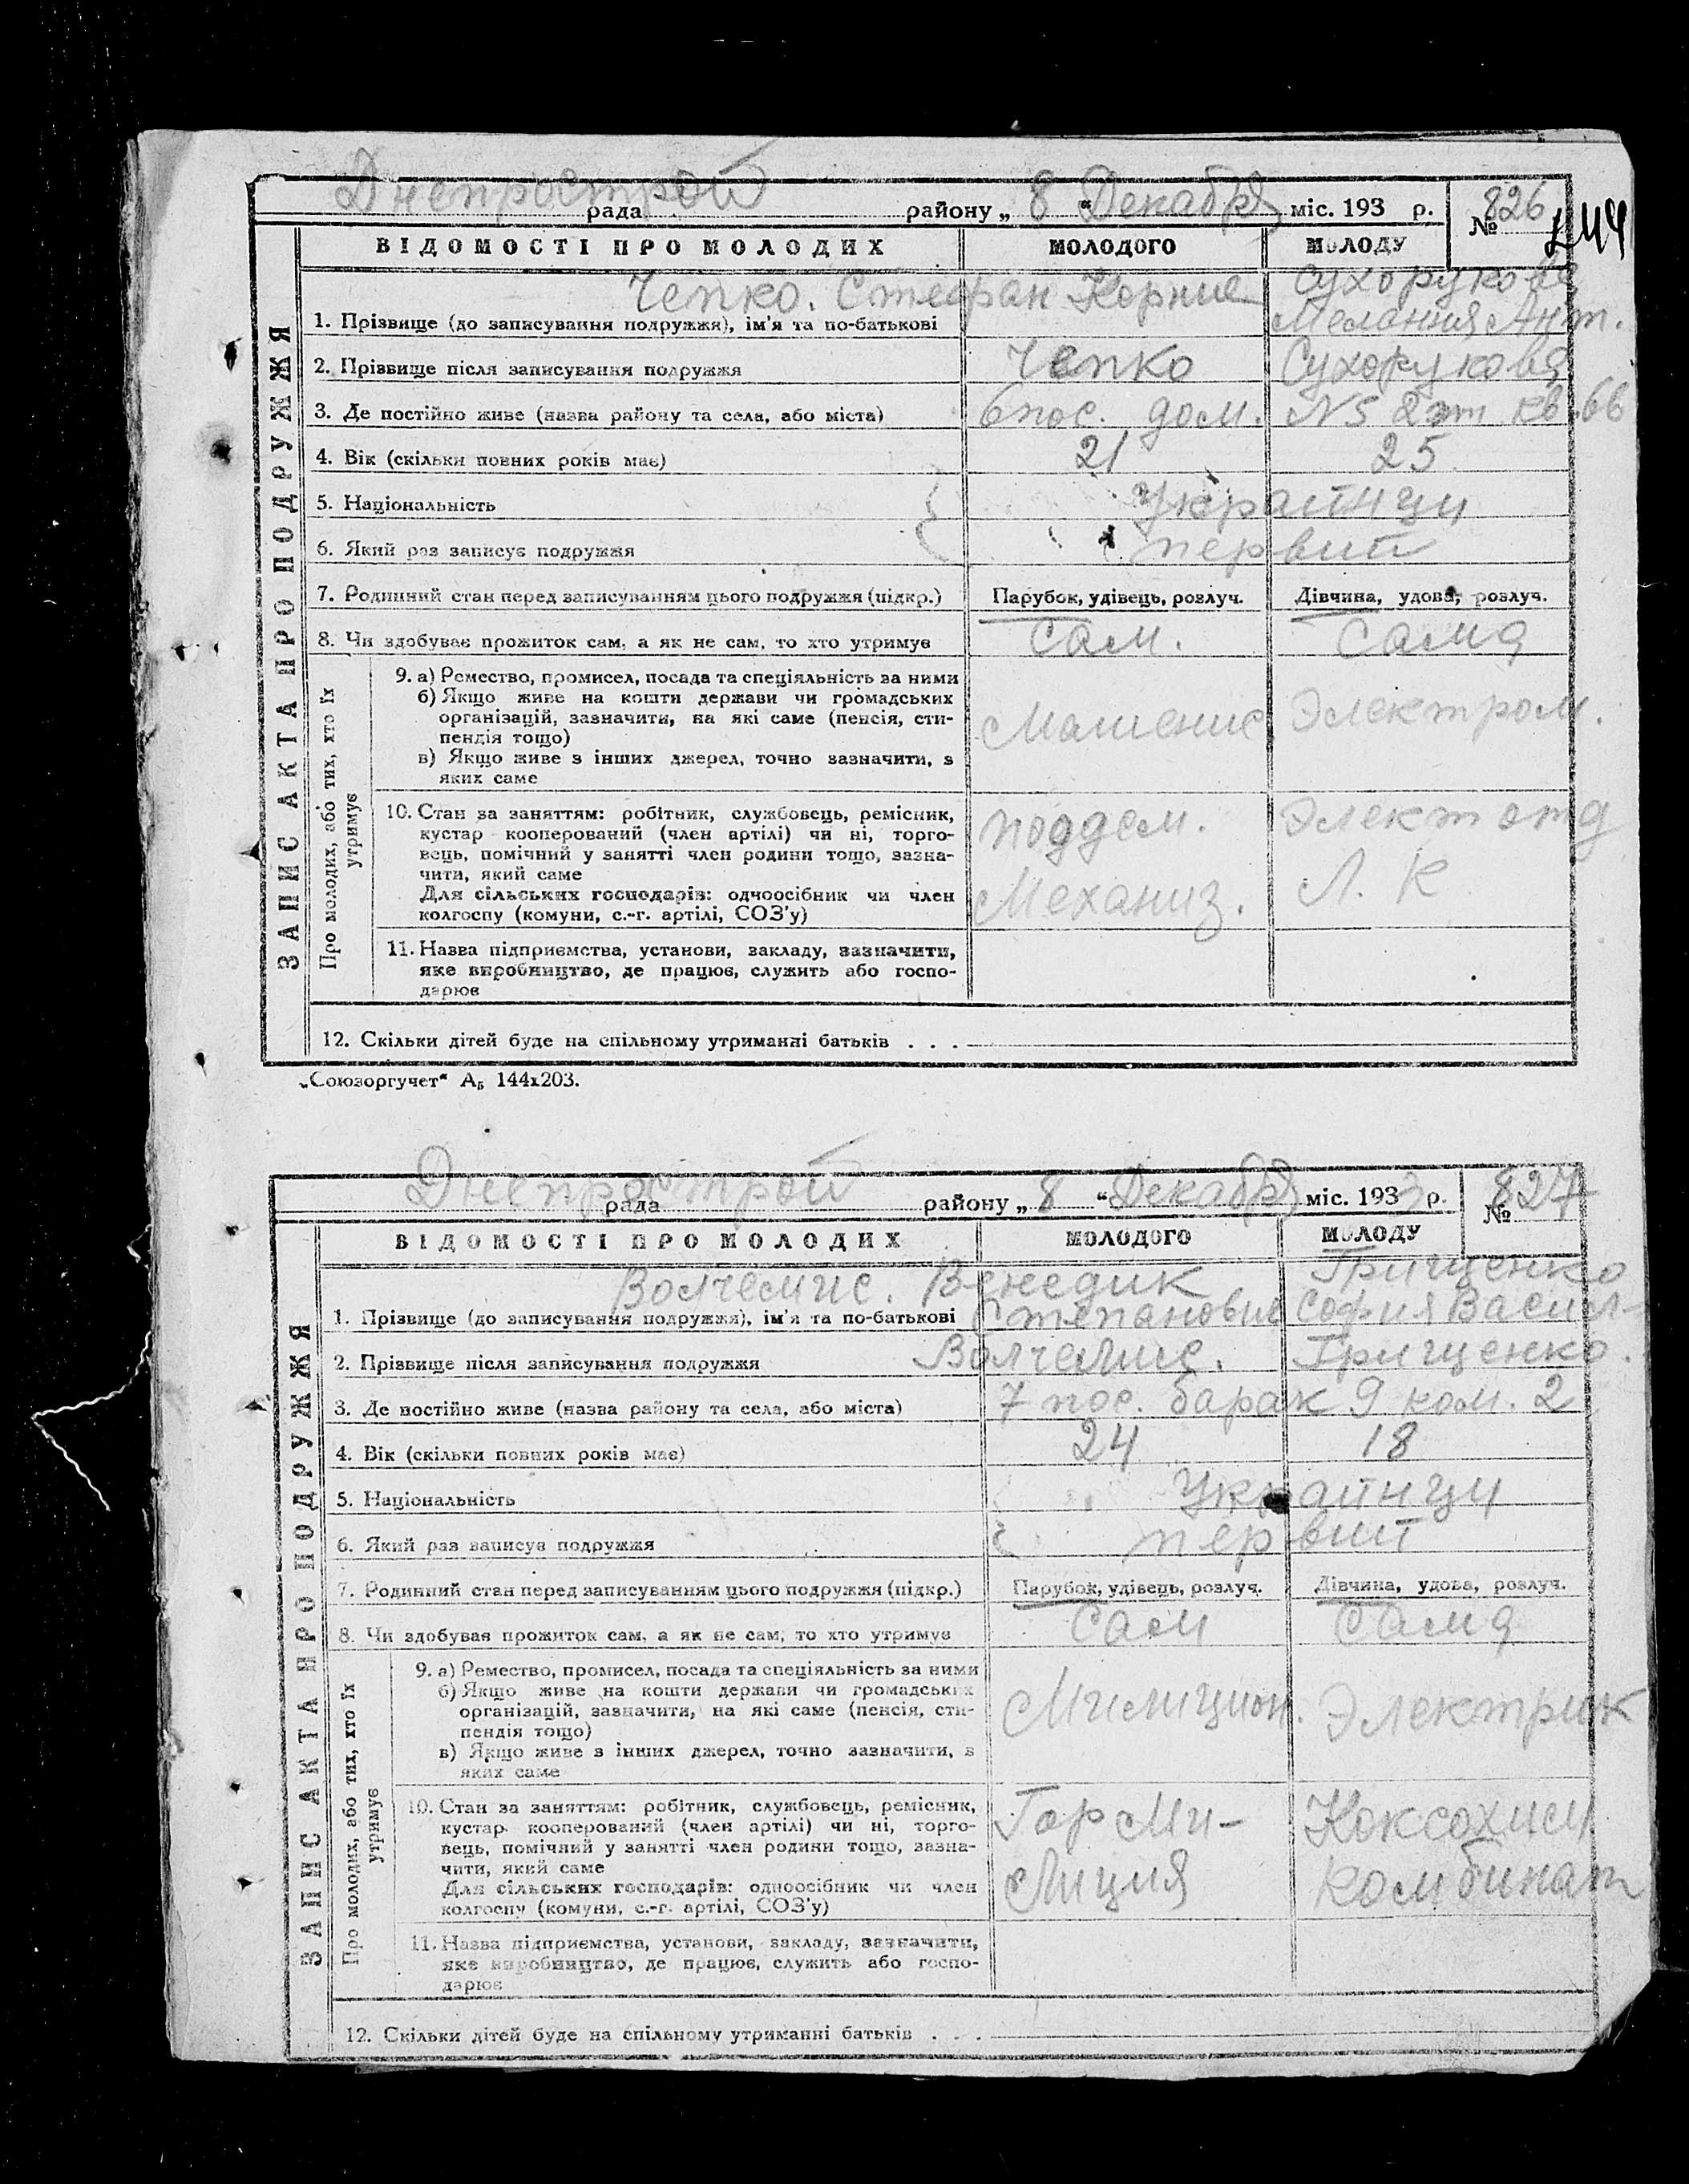 Днепрострой
рада района „ 8 “ Декабря міс. 193 р. № 826
ВІДОМОСТІ ПРО МОЛОДИХ МОЛОДОГО МОЛОДУ
ЗАПИС АКТА ПРО ПОДРУЖЖЯ
Чепко. Стефан Корние Сухорукова
1. Прізвище (до записування подружжя), ім'я та по-батькові Мелания Ант.
2. Прізвище після записування подружжя Чепко Сухорукова
3. Де постійно живе (назва району та села, або міста) 6 пос. дом. N5 2 эт кв. 66
4. Вік (скільки повних років має) 21 25
5. Національність Украйнци
6. Який раз записує подружжя первий
7. Родинний стан перед записуванням цього подружжя (підкр.) Парубок, удівець, розлуч. Дівчина, удова, розлуч.
8. Чи здобуває прожиток сам, а як не сам, то хто утримує Сам. Сама
Про молодих, або тих, хто їх
утримує
9. а) Ремество, промисел, посада та спеціяльність за ними
б) Якщо живе на кошти держави чи громадських
організацій, зазначити, на які саме (пенсія, сти-
пендія тощо) Электром.
в) Якщо живе з інших джерел, точно зазначити, з
яких саме
10. Стан за заняттям: робітник, службовець, ремісник, поддом. Элект отд
кустар кооперований (член артілі) чи ні, торго-
вець, помічний у занятті член родини тощо, зазна-
чити, який саме
Для сільських господарів: одноосібник чи член Механиз. Л. К
колгоспу (комуни, с.-г. артілі, СОЗ'у)
11. Назва підприємства, установи, закладу, зазначити,
яке виробництво, де працює, служить або госпо-
дарює
12. Скільки дітей буде на спільному утриманні батьків . . .
„Союзоргучет“ А₅ 144х203.
Днепрострой
рада району „ 8 “ Декабря міс. 1933 р. № 827
ВІДОМОСТІ ПРО МОЛОДИХ МОЛОДОГО МОЛОДУ
ЗАПИС АКТА ПРО ПОДРУЖЖЯ
Венедик Грищенко
1. Прізвище (до записування подружжя), ім'я та по-батькові Степанович София Васил-
2. Прізвище після записування подружжя Грищенко.
3. Де постійно живе (назва району та села, або міста) 7 пос. барак 9 ком. 2
4. Вік (скільки повних років має) 24 18
5. Національність Украйнци
6. Який раз записує подружжя первий
7. Родинний стан перед записуванням цього подружжя (підкр.) Парубок, удівець, розлуч. Дівчина, удова, розлуч.
8. Чи здобуває прожиток сам, а як не сам, то хто утримує Сам Сама
Про молодих, або тих, хто їх
утримує
9. а) Ремество, промисел, посада та спеціяльність за ними
б) Якщо живе на кошти держави чи громадських
організацій, зазначити, на які саме (пенсія, сти- Милицион. Электрик
пендія тощо)
в) Якщо живе з інших джерел, точно зазначити, з
яких саме
10. Стан за заняттям: робітник, службовець, ремісник, Гор Ми- Коксохим
кустар кооперований (член артілі) чи ні, торго-
вець, помічний у занятті член родини тощо, зазна-
чити, який саме
Для сільських господарів: одноосібник чи член лиция комбинат
колгоспу (комуни, с.-г. артілі, СОЗ'у)
11. Назва підприємства, установи, закладу, зазначити,
яке виробництво, де працює, служить або госпо-
дарює
12. Скільки дітей буде на спільному утриманні батьків . . .